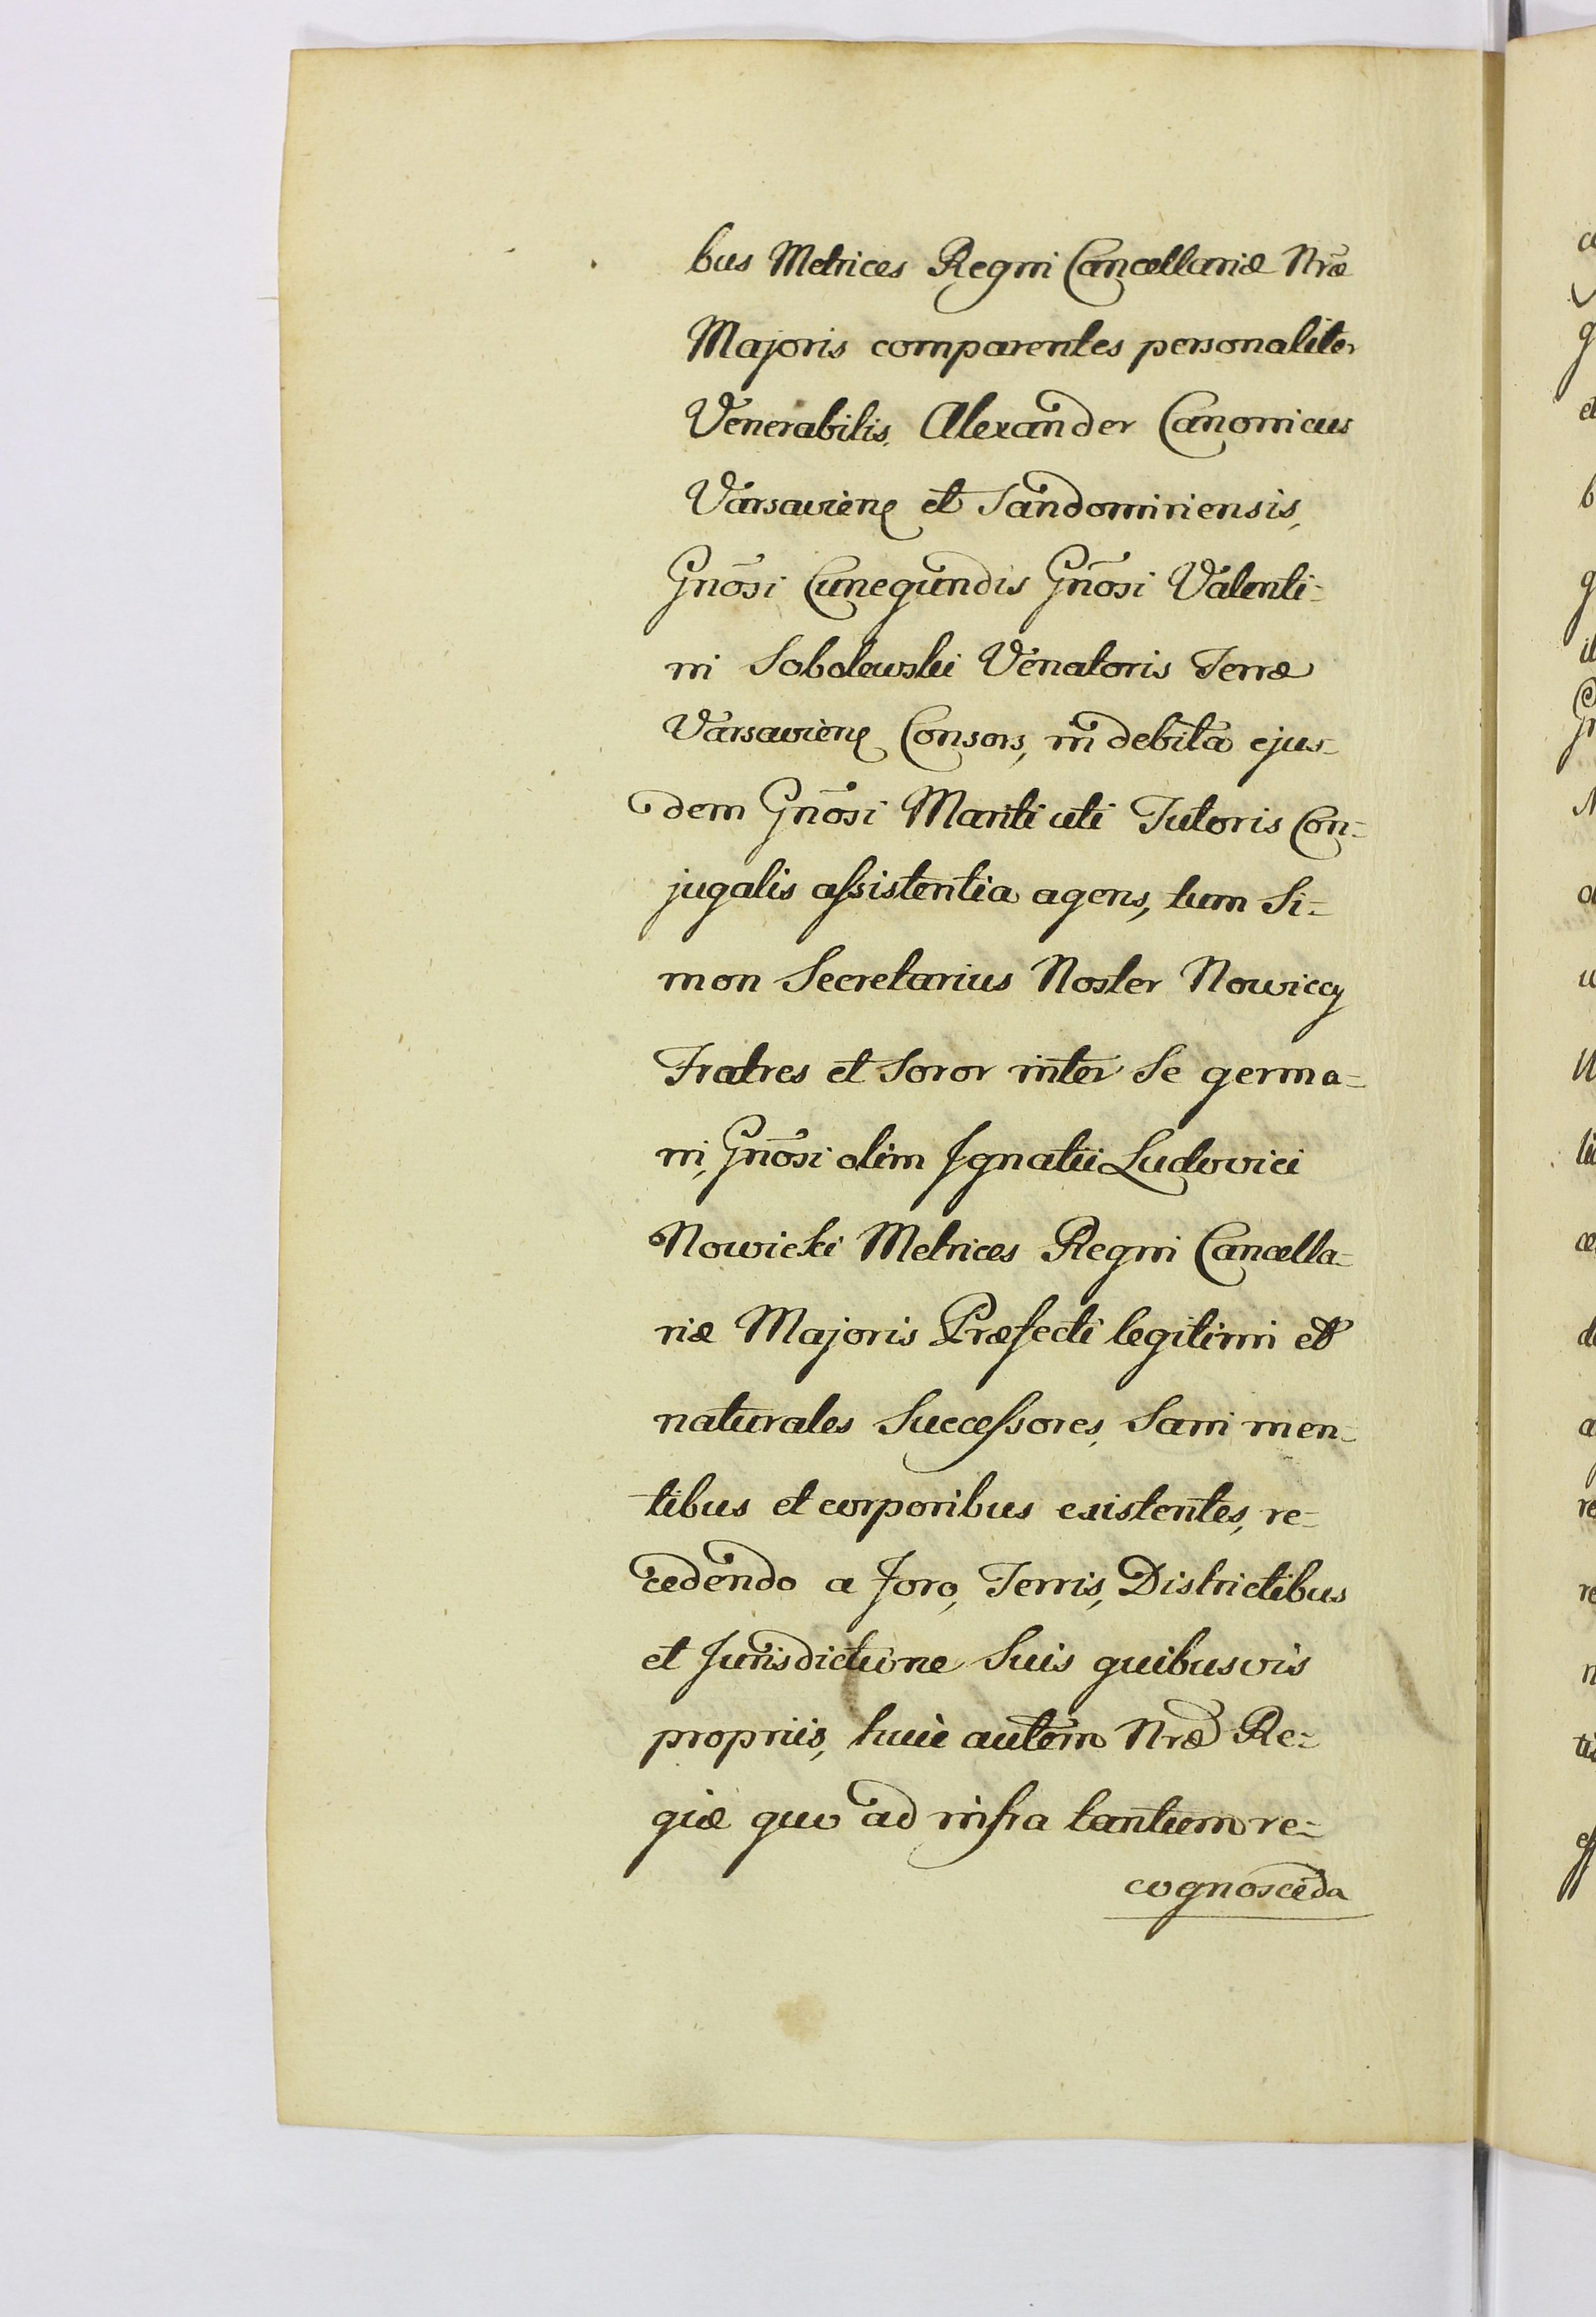 bus Metrices Regni Cancellariæ Nr̃æ
Majoris comparentes personaliter
Venerabilis Alexander Canonicus
Varsavien̄ et Sandomiriensis,
Gnõsi Cunegundis Gnõsi Valenti=
ni Sobolewski Venatoris Terræ
Varsavien̄ Consors, in debita ejus=
dem Gnõsi Mariti uti Tutoris Con=
jugalis aſsistentia agens, tum Si=
mon Secretarius Noster Nowiccy
Fratres et Soror inter Se germa=
ni, Gnõsi olim Ignatii Ludovici
Nowicki Metrices Regni Cancella=
riæ Majoris Præfecti legitimi et
naturales Succeſsores, Sani men=
tibus et corporibus existentes, re=
cedendo a Foro, Terris, Districtibus
et Jurisdictione Suis quibusvis
propriis, huic autem Nr̃æ Re=
giæ quo ad infra tantum re=
cognoscẽda